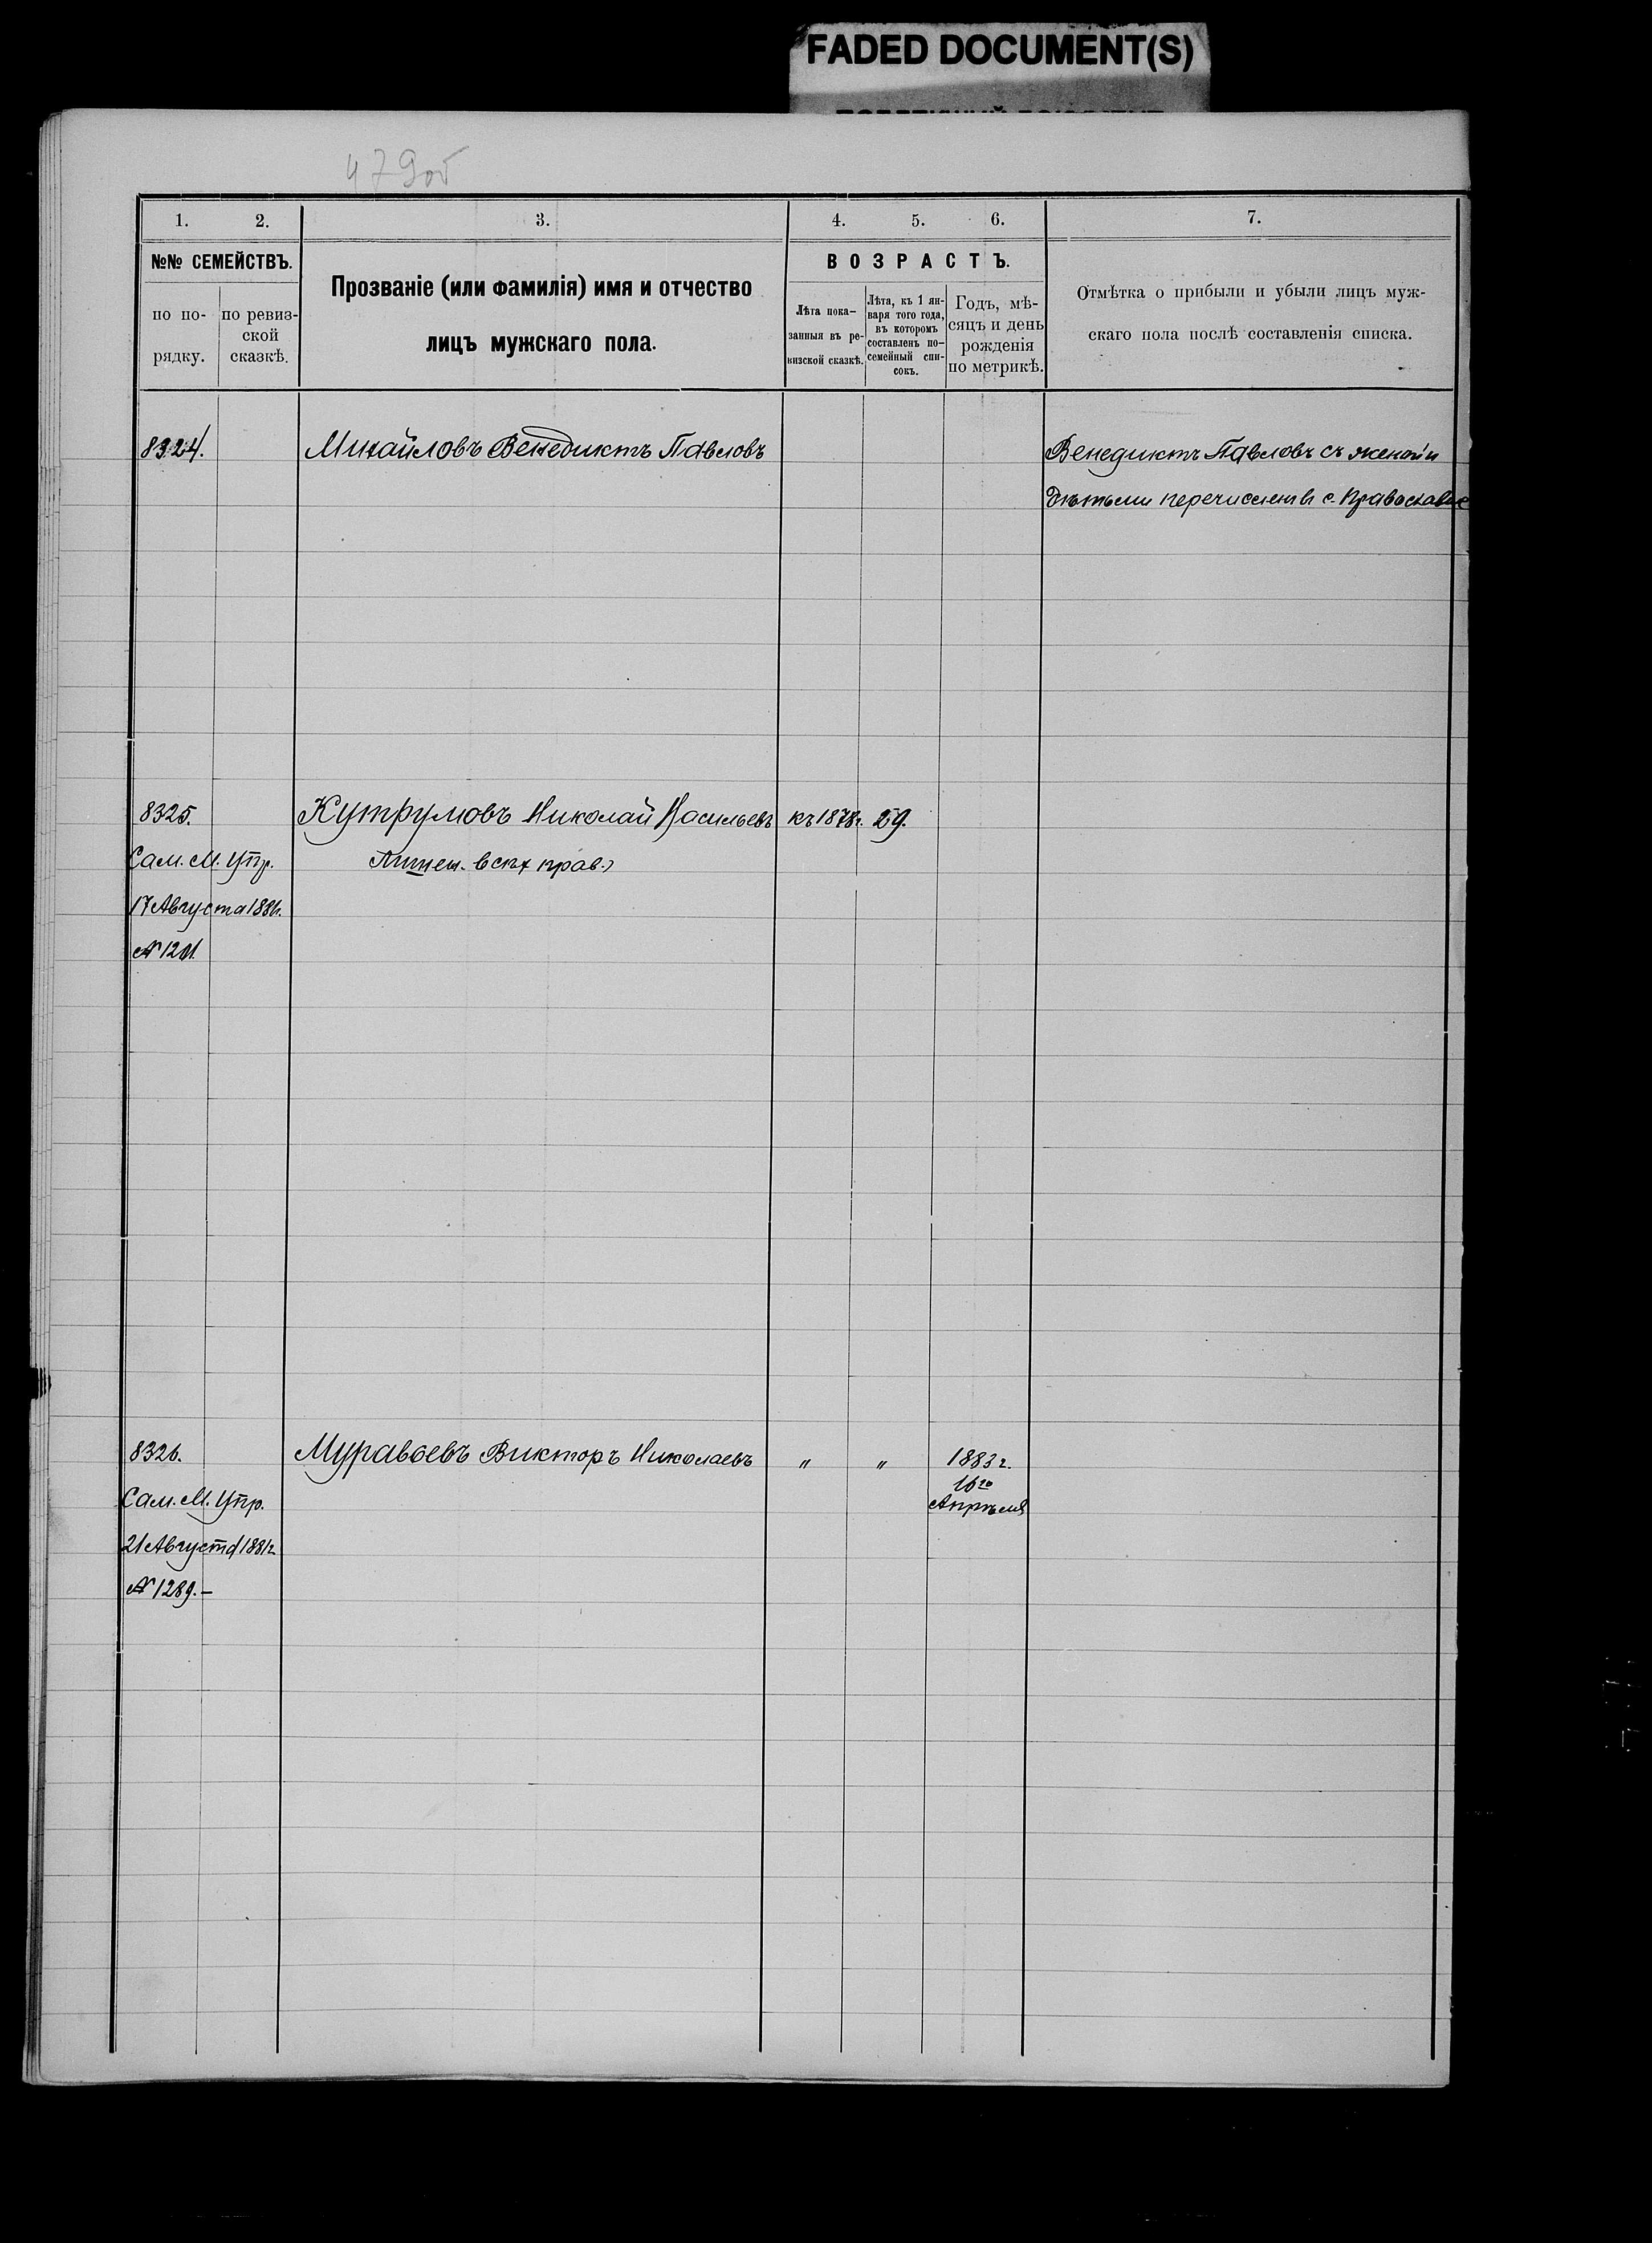 FADED DOCUMENT(S)
479об
1. 2. 3. 4. 5. 6. 7.
№№ СЕМЕЙСТВЪ.
по по-
рядку.
по ревиз-
ской
сказкѣ.
Прозваніе (или фамилія) имя и отчество
лицъ мужскаго пола.
ВОЗРАСТЪ.
Лѣта пока-
занныя въ ре-
визской сказкѣ.
Лѣта, къ 1 ян-
варя того года,
въ которомъ
составленъ по-
семейный спи-
сокъ.
Годъ, мѣ-
сяцъ и день
рожденія
по метрикѣ.
Отмѣтка о прибыли и убыли лицъ муж-
скаго пола послѣ составленія списка.
8324. Михайловъ Венедиктъ Павловъ Венедиктъ Павловъ съ женой и
дѣтьми перечислен въ с. Православные
8325. Кутрумовъ Николай Васильевъ къ 1878г. 29.
Сам. М. Упр. Лишен. всѣх прав.)
17 Августа 1881г.
№
8326. Муравьевъ Викторъ Николаевъ " " 1883г.
16го
Сам. М. Упр. Апрѣля
21 Августа 1881г.
№ 1289.–